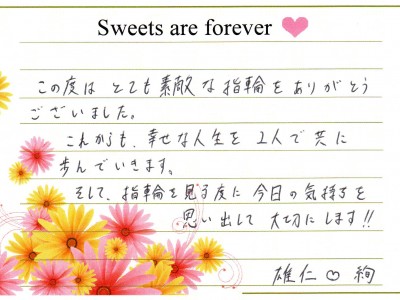 Sweets are forever
この度は とても 素敵 な 指輪 を ありがとう
ございました。
これからも、幸せな人生を 2人で 共に
歩んでいきます。
そして、指輪を見る度に 今日の気持ちを
思い出して 大切にします!!
雄仁 ♡ 絢